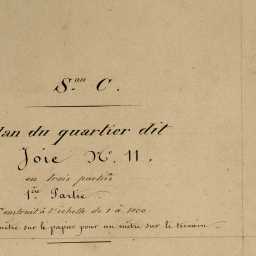 Son C.
lan du quartier dit
Joie N.o 11.
en trois parties
1ère Partie
Construit à l'échelle de 1 à 1000
mètre sur le papier pour un mètre sur le terrain.